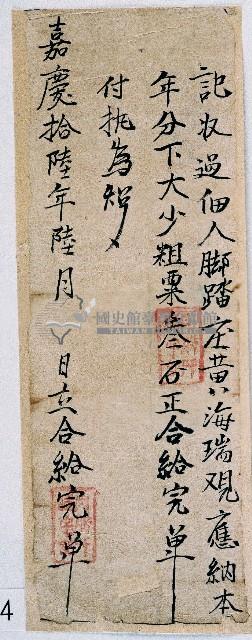 記收過佃人脚踏庄黃海瑞覌應納本
年分下大少粗粟叁石正合給完單
付执為炤
嘉慶拾陸年陸月 日立合給完單
國史館臺灣文獻館
TAIWAN HISTORICA
4